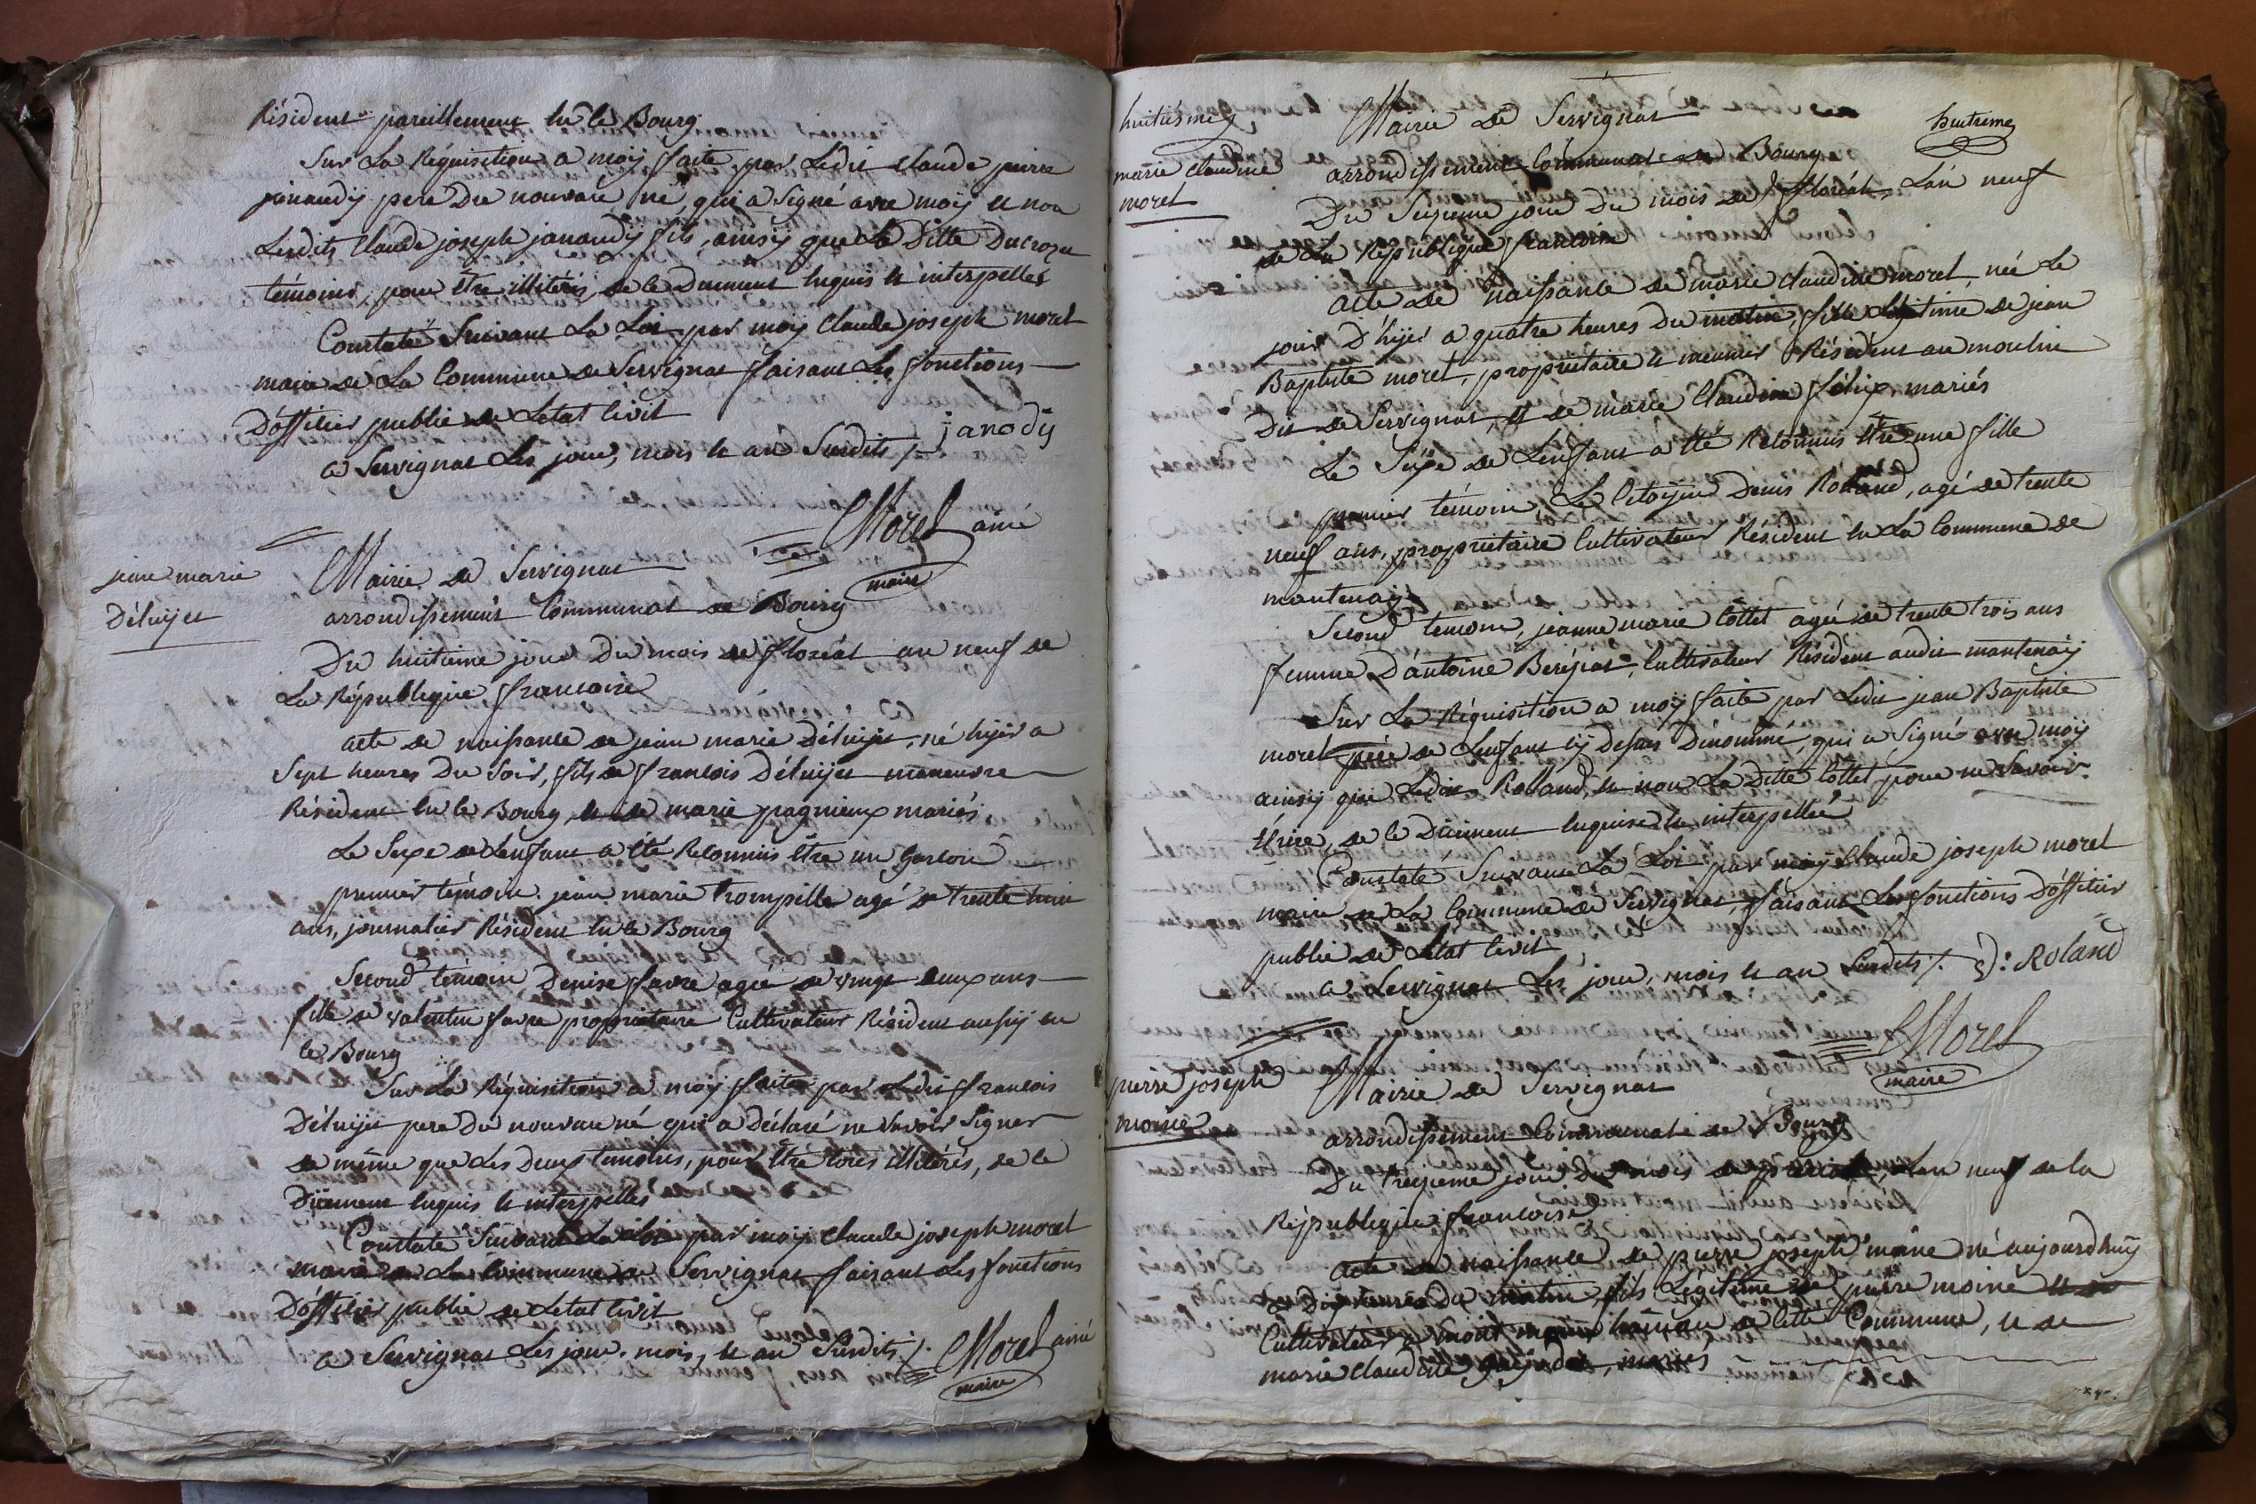 Résident pareillement en le Bourg
Sur La Réquisition a moij faite par Ledit Claude pierre
janaudij pere Du nouvaux né qui a signé avec moij et non
Lesdits Claude joseph janaudij fils, ainsij que la Ditte Ducroze
témoins, pour être illiterés, de ce Dument enquis et interpellés
Constaté Suivant La Loi par moij Claude joseph morel
maire de La Commune de Servignat faisant Les fonctions
D'officier public de Letat Civil
a Servignat Les jour, mois et an Susdits /. janodij
Morel ainé
maire
jean marie
Délaijet
Mairie de Servignat
arrondissement Communal de Bourg
Du huitieme jour Du mois de floréal an neuf de
La République francoise
acte de naissance de jean marie Délaijet, né hijer a
Sept heures Du Soir, fils de francois Délaijet maneuvre
Résident en le Bourg, et de marie pagnieux mariés
Le Sexe de L'enfant a été Reconnus être un Garcon
premier témoin jean marie trompille agé de trente huit
ans, journalier Résident en le Bourg
Second témoin Denise favre agée de vingt deux ans
fille de valentin favre propriétaire Cultivateur Résident aussij en
le Bourg
Sur La Réquisition a moij faite par Ledit francois
Délaijet pere Du nouveau né qui a Déclaré ne Savoir Signer
de même que Les Deux temoins, pour être tous illiterés, de ce
Dûement enquis et interpellés
Constaté Suivant La Loi par moij Claude joseph morel
maire de La Commune de Servignat faisant Les fonctions
D'officier public de Letat Civil
a Servignat Les jour, mois, et an Susdits /. Morel ainé
maire
huitiéme
marie Claudine
morel
Mairie de Servignat
huitieme
arrondissement Communal de Bourg
Du Seizieme jour Du mois de floréal, L'an neuf
de La République francoise
acte de Naissance de marie claudine morel, née Le
jour D'hijer a quatre heures Du matin, fille Légitime de jean
Baptiste morel, propriétaire et meunier Résident au moulin
Dit de Servignat, et de marie Claudine félix, mariés
Le Sexe de L'enfant a été Reconnus être une fille
premier témoin Le Citoijen Denis Rolland, agé de trente
neuf ans, propriétaire Cultivateur Résident en La Commune de
mantenaij
Second temoin, jeanne marie Côttet agée de trente trois ans
femme D'antoine Beréziat, Cultivateur Résident audit mantenaij
Sur La Réquisition a moij faite par Ledit jean Baptiste
morel pére de L'enfant cij Dessus Dénommé, qui a Signé avec moij
ainsij que Ledit Rolland, et non La Ditte Côttet pour ne Savoir
Ecrire, de ce Dûement enquise et interpellée
Constaté Suivant La Loi par moij Claude joseph morel
maire de La Commune de Servignat, faisant Les fonctions D'officier
public de Létat Civil
a Servignat Les jour, mois et an Susdits /. D: Roland
Morel
maire
pierre joseph
moine
Mairie de Servignat
arrondissement Communal de Bourg
Du treizieme jour Du mois de prairial, L'an neuf de la
République francoise
acte de naissance de pierre joseph moine né aujourd'huij
a Dix heures Du matin, fils Légitime de pierre moine
Cultivateur hâmeau de Cette Commune, et de
marie Claudine mariés